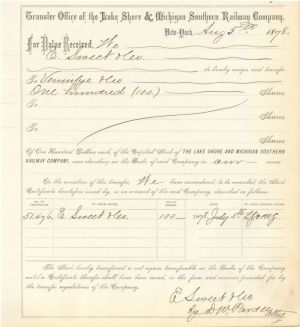 Transfer Office of the Lake Shore & Michigan Southern Railway Company,
New-York, Aug 5th 1878.
For Value Received, We
E. Sweet & Co.
do hereby assign and transfer
To & Co
One hundred (100.) Shares
To Shares
To Shares
Of One Hundred Dollars each, of the Capital Stock of THE LAKE SHORE AND MICHIGAN SOUTHERN
RAILWAY COMPANY, now standing on the Books of said Company in our name
On the execution of this transfer, We have surrendered, to be canceled, the Stock
Certificate heretofore issued by, or on account of the said Company, described as follows:
51476, E. Sweet & Co. 100 — 1878 July 5th
The Stock hereby transferred is not again transferable on the Books of the Company
until a Certificate thereof shall have been issued, in the form and manner provided for by
the transfer regulations of the Company.
E Sweet & Co
by D. W. Pardee Atty